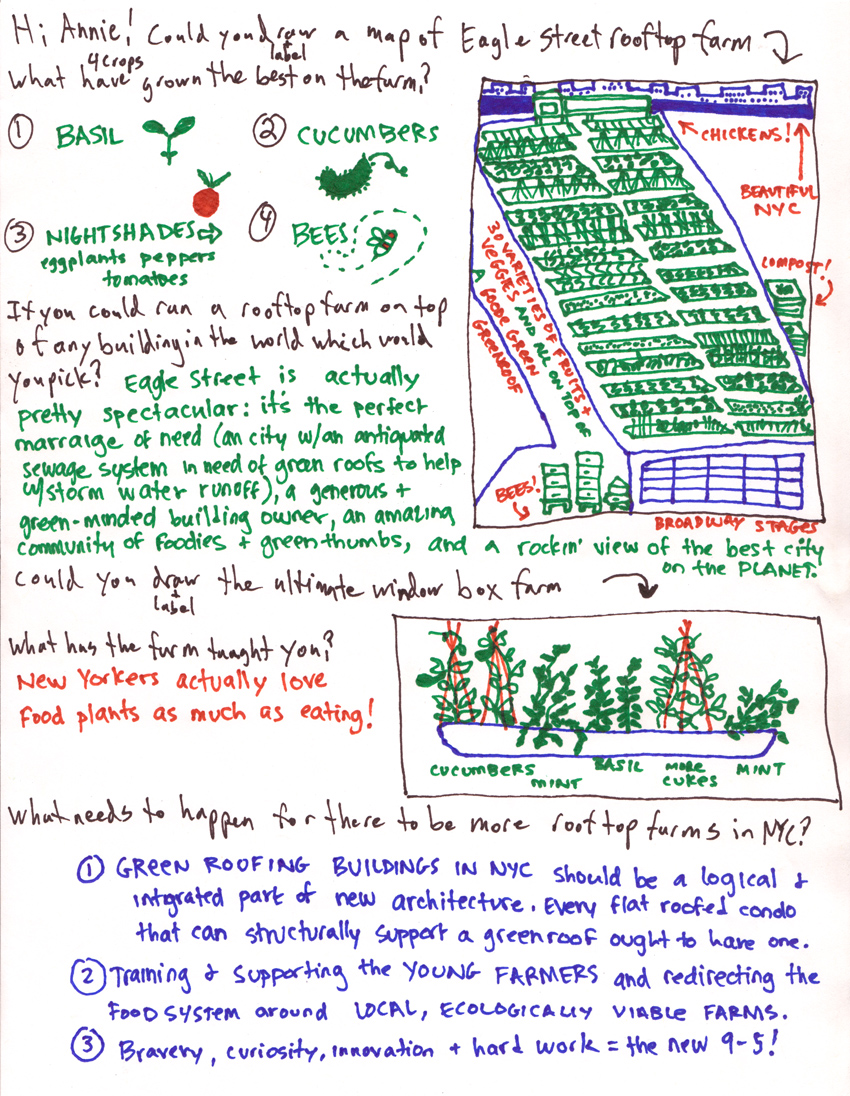 Hi, Annie! Could you draw + label a map of Eagle Street rooftop farm
What 4 crops have grown the best on the farm?
① BASIL
② CUCUMBERS
③ NIGHTSHADES
eggplants peppers
tomatoes
④ BEES
CHICKENS!
BEAUTIFUL
NYC
COMPOST!
30 VARIETIES OF FRUITS +
VEGGIES AND ALL ON TOP OF
A GREEN
GREENROOF
BEES!
BROADWAY STAGES
If you could run a rooftop farm on top
of any building in the world which would
you pick? Eagle Street is actually
pretty spectacular: it's the perfect
marraige of need (an city w/an antiquated
sewage system in need of green roofs to help
w/storm water runoff), a generous +
green-minded building owner, an amazing
community of foodies + greenthumbs, and a rockin' view of the best city
on the PLANET.
Could you draw + label the ultimate window box farm
CUCUMBERS
MINT
BASIL
MORE
CUKES
MINT
What has the farm taught you?
New Yorkers actually love
food plants as much as eating!
What needs to happen for there to be more rooftop farms in NYC?
① GREEN ROOFING BUILDINGS IN NYC should be a logical &
intgrated part of new architecture. Every flat roofed condo
that can structurally support a greenroof ought to have one.
② Training & supporting the YOUNG FARMERS and redirecting the
FOOD SYSTEM around LOCAL, ECOLOGICALLY VIABLE FARMS.
③ Bravery, curiosity, innovation + hard work = the new 9-5!